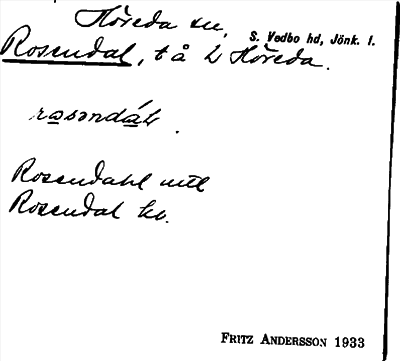 Höreda sn, S. Vedbo hd, Jönk. l.
Rosendal, t å L Höreda.
rosəndáL.
Rosendahl
Rosendal kv.
FRITZ ANDERSSON 1933